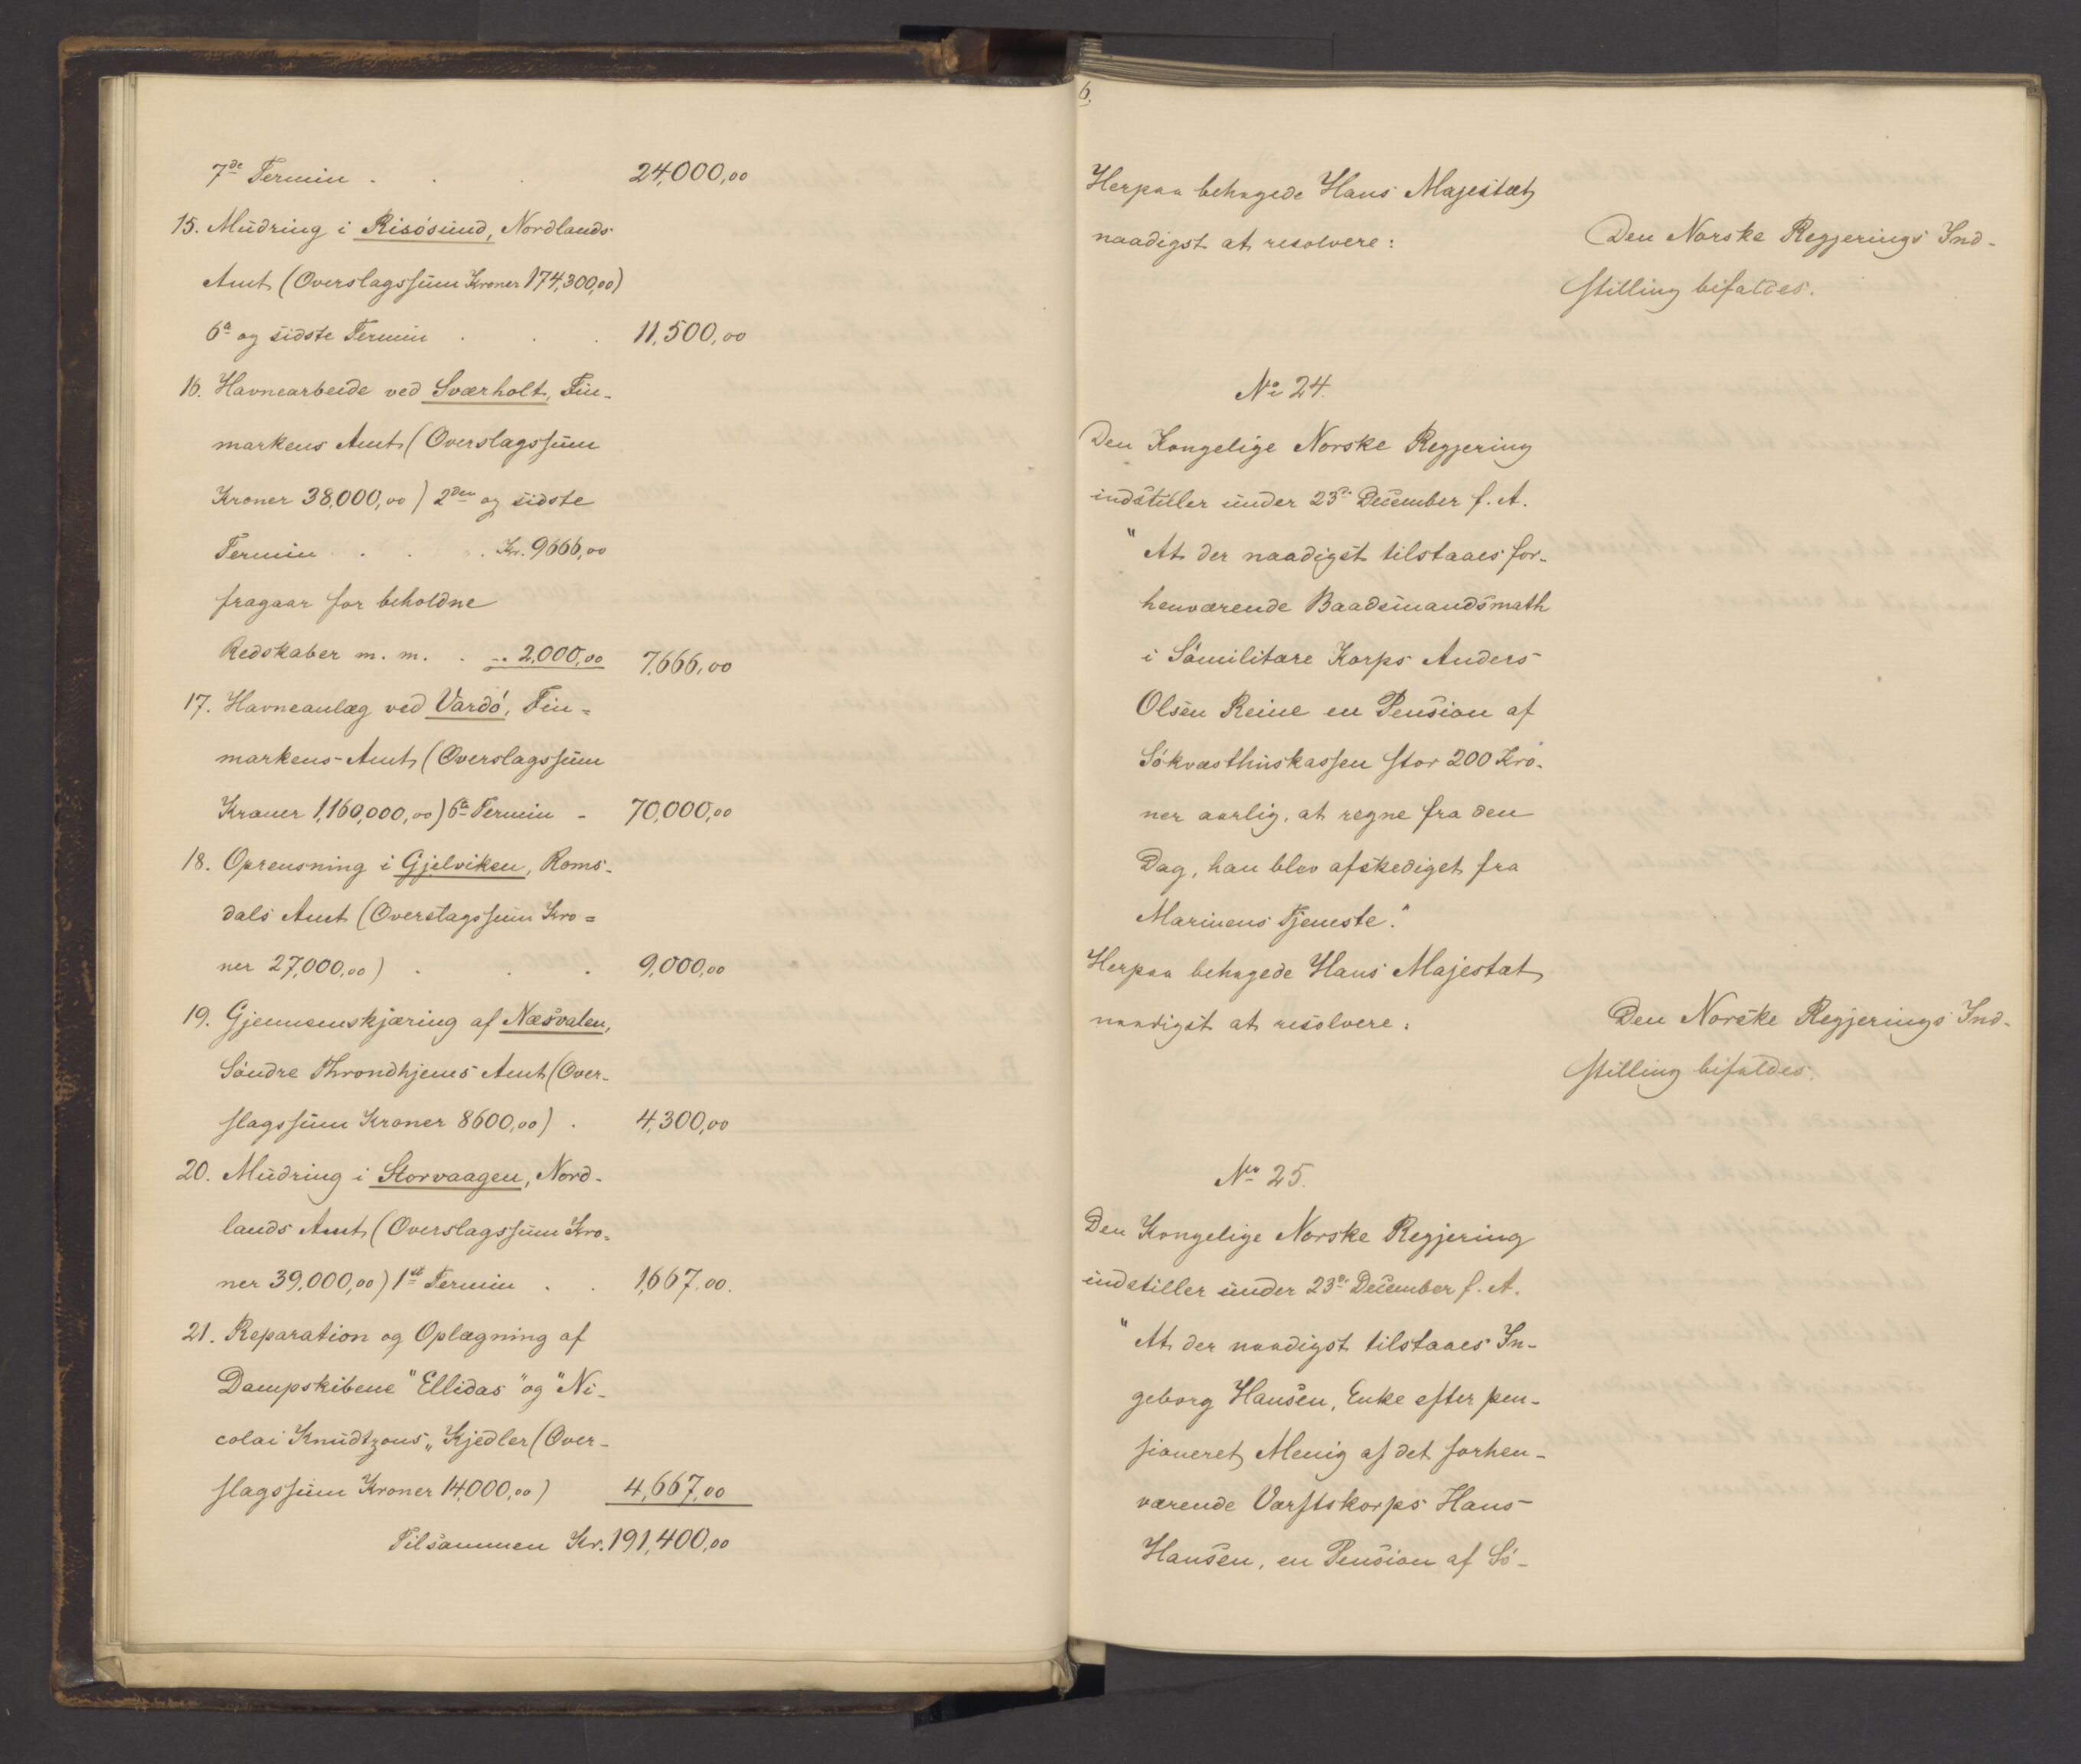 7de Termin . . . 24,000,00
15. Mudring i Risøsund, Nordlands
Amt (Overslagssum Kroner 174,300,00)
6te og sidste Termin . . . 11,500,00
16. Havnearbeide ved Sværholt, Fin-
markens Amt (Overslagssum
Kroner 38,000,00) 2den og sidste
Termin . . . Kr. 9666,00
fragaar for beholdne
Redskaber m. m. . -.. 2,000,00 7,666,00
17. Havneanlæg ved Vardø, Fin=
markens-Amt (Overslagssum
Kroner 1,160,000,00) 6te Termin - 70,000,00
18. Oprensning i Gjelviken, Roms-
dals Amt (Overslagssum Kro=
ner 27,000,00) . . . 9,000,00
19. Gjennemskjæring af Næsvalen,
Søndre Throndhjems Amt (Over-
slagssum Kroner 8600,00) . 4,300,00
20. Mudring i Storvaagen, Nord-
lands Amt (Overslagssum Kro-
ner 39,000,00) 1st Termin . . 1,667.00.
21. Reparation og Oplægning af
Dampskibene "Ellidas" og "Ni-
colai Knudtzons„ Kjedler (Over-
slagssum Kroner 14,000,00) 4,667,00
Tilsammen Kr. 191,400,00
6.
Herpaa behagede Hans Majestæt
naadigst at resolvere:
Den Norske Regjerings Ind-
stilling bifaldes.
No 24.
Den Kongelige Norske Regjering
indstiller under 23de December f. A.
"At der naadigst tilstaaes for-
henværende Baadsmandsmath
i Sømilitære Korps Anders
Olsen Reine en Pension af
Søkvæsthuskassen stor 200 Kro-
ner aarlig, at regne fra den
Dag, han blev afskediget fra
Marinens Tjeneste."
Herpaa behagede Hans Majestæt
naadigst at resolvere:
Den Norske Regjerings Ind-
stilling bifaldes.
No 25.
Den Kongelige Norske Regjering
indstiller under 23de December f. A.
"At der naadigst tilstaaes In-
geborg Hansen, Enke efter pen-
sioneret Menig af det forhen-
værende Værftskorps Hans
Hansen, en Pension af Sø-